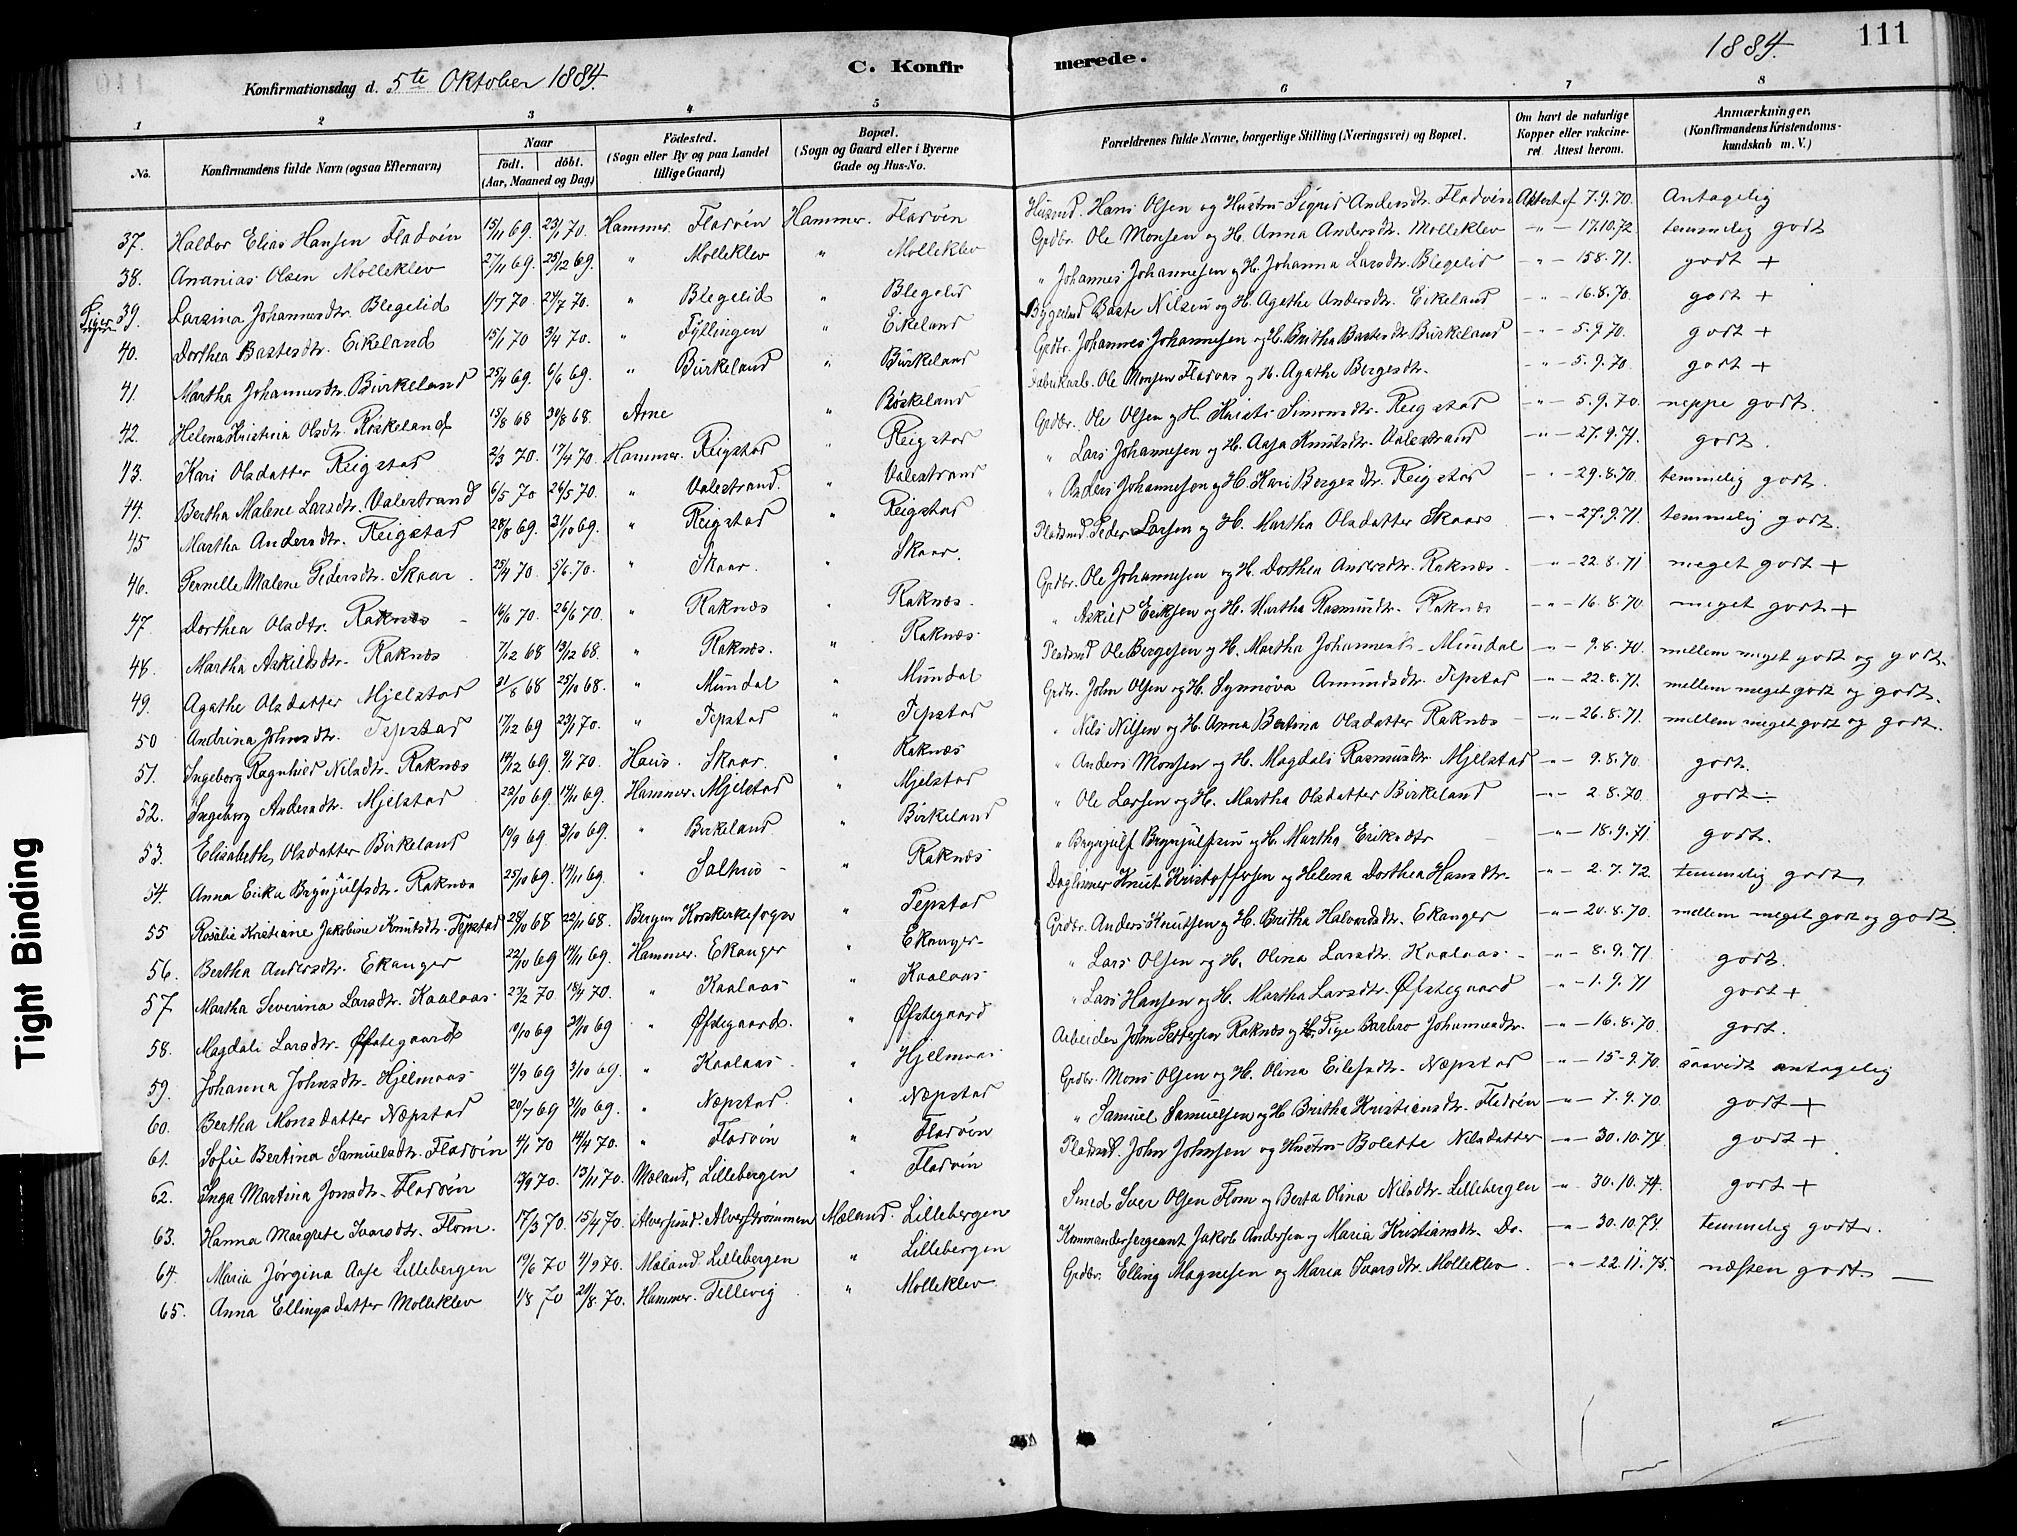 1884. 111
C. Konfirmerede.
Konfirmationsdag d. 5te Oktober 1884.
1 2 3 4 5 6 7 8
No. Konfirmandens fulde Navn (ogsaa Efternavn) Naar födt. döbt. (Aar, Maaned og Dag) Födested. (Sogn eller By og paa Landet tillige Gaard) Bopæl. (Sogn og Gaard eller i Byerne Gade og Hus-No. Forældrenes fulde Navne, borgerlige Stilling (Næringsvei) og Bopæl. Om havt de naturlige Kopper eller vakcineret. Attest herom. Anmærkninger. (Konfirmandens Kristendomskundskab m. V.)
37. Haldor Elias Hansen Fladvøn 15/11 69. 23/1 70. Hammer. Fladvøn Hammer. Fladvøn Husmd. Hans Olsen og Hustru Sigrid Andersdtr. Fladvøen Attest af 7.9.70. Antagelig
38. Ananias Olsen Molleklev 27/11 69. 25/12 69. " Molleklev " Molleklev Grdbr. Ole Monsen og H. Anna Andersdtr. Molleklev -"- 17.10.72 temmelig godt
Piger
39. Larsina Johannesdtr. Blegelid 1/7 70. 24/7 70. " Blegelid " Blegelid " Johannes Johannesen og H. Johanna Larsdtr. Blegelid -"- 15.8.71. godt +
40. Dorthea Bastesdtr. Eikeland 15/1 70 3/4 70. " Fyllingen " Eikeland Bygselmd Baste Nilsen og H. Agathe Andersdtr. Eikeland -"- 16.8.70. godt +
41. Martha Johannesdtr. Birkeland 25/4 69. 6/6 69. " Birkeland " Birkeland Grdbr. Johannes Johannesen og H. Britha Bastesdtr. Birkeland -"- 5.9.70. godt +
42. Helena Kristina Olsdtr. Röskeland 15/8 68 30/8 68. Arne " Röskeland Fabrikarb. Ole Monsen Fladvas og H. Agathe Bergesdtr. -"- 5.9.70 godt +
43. Kari Olsdatter Reigstad 2/3 70. 17/4 70. Hammer. Reigstad " Reigstad Grdbr. Ole Olsen og H. Kristi Simonsdtr. Reigstad -"- 5.9.70. neppe godt.
44. Bertha Malene Larsdtr. Valestrand 6/5 70 26/5 70. " Valestrand. " Valestrand " Lars Johannesen og H. Aasa Knutsdtr. Valestrand -"- 27.9.71. godt.
45 Martha Andersdtr. Reigstad 28/8 69. 31/10 69. " Reigstad " Reigstad " Anders Johannesen og H. Kari Bergesdtr. Reigstad -"- 29.8.70. temmelig godt.
46. Pernelle Malene Pedersdtr. Skaar. 25/4 70. 5/6 70. " Skaar. " Skaar. Pladsmd Peder Larsen og H. Martha Olsdatter Skaar -"- 27.9.71. temmelig godt.
47. Dorthea Olsdtr. Raknæs 16/6 70. 26/6 70. " Raknæs " Raknæs. Grdbr. Ole Johannesen og H. Dorthea Andersdtr. Raknæs. -"- 22.8.71 meget godt +
48. Martha Askildsdtr. Raknæs 7/12 68 13/12 68. " Raknæs. " Raknæs. " Askild Eriksen og H. Martha Rasmusdtr. Raknæs -"- 16.8.70. meget godt +
49. Agathe Olsdatter Mjelstad 31/8 68 25/10 68. " Mundal " Mundal Pladsmd Ole Bergesen og H. Martha Johannesdtr. Mundal -"- 9.8.70. mellem meget godt og godt.
50 Andrina Johnsdtr. Tepstad 17/12 69 23/1 70. " Tepstad " Tepstad Grdbr. John Olsen og H. Synnøva Amundsdtr. Tepstad -"- 22.8.71. mellem meget godt og godt.
51. Ingeborg Ragnhild Nilsdtr. Raknæs 19/12 69. 9/1 70. Haus. Skaar. " Raknæs " Nils Nilsen og H. Anna Bertina Olsdatter Raknæs -"- 26.8.71. mellem meget godt og godt.
52. Ingeborg Andersdtr. Mjelstad 22/10 69 14/11 69. Hammer. Mjelstad " Mjelstad " Anders Monsen og H. Magdali Rasmusdtr. Mjelstad -"- 9.8.70. godt.
53. Elisabeth Olsdatter Birkeland 19/9 69. 3/10 69. " Birkeland. " Birkeland " Ole Larsen og H. Martha Olsdatter Birkeland -"- 2.8.70. godt -
54. Anna Erika Brynjulfsdtr. Raknæs 25/10 69. 14/11 69. " Salhus " Raknæs " Brynjulf Brynjulfsen og H. Martha Eriksdtr -"- 18.9.71. godt.
55 Rosalie Kristiane Jakobine Knutsdtr. Tepstad 28/10 68 22/11 68. Bergen Korskirkesogn " Tepstad Daglønner Knut Kristoffersen og Helena Dorthea Hansdtr. -"- 2.7.72. temmelig godt
56. Bertha Andersdtr. Ekanger 22/10 69 14/11 69. Hammer. Ekanger " Ekanger Grdbr. Anders Knutsen og H. Britha Halvardsdtr. Ekanger -"- 20.8.70. mellem meget godt og godt
57. Martha Severina Larsdtr. Kaalaas 23/2 70 18/4 70. " Kaalaas " Kaalaas " Lars Olsen og H. Olina Larsdtr. Kaalaas -"- 8.9.71. godt.
58. Magdali Larsdtr. Øfstegaard 10/10 69 31/10 69 " Øfstegaard. " Øfstegaard " Lars Hansen og H. Martha Larsdtr. Øfstegaard -"- 1.9.71 godt +
59. Johanna Johnsdtr. Hjelmaas 4/9 69 3/10 69. " Kaalaas " Hjelmaas Arbeider John Pettersen Raknæs og H. Pige Barbro Johannesdtr. -"- 16.8.70. godt.
60. Bertha Monsdatter Næpstad 20/7 69 3/10 69. " Næpstad. " Næpstad Grdbr. Mons Olsen og H. Olina Eilefsdtr. Næpstad -"- 15.9.70. saavidt antagelig
61. Sofie Bertina Samuelsdtr. Fladvøn 4/1 70 14/4 70. " Fladvøn " Fladvøn " Samuel Samuelsen og H. Britha Kristiansdtr. Fladvøn -"- 7.9.70. godt +
62. Inga Martina Jonsdtr. Fladvøn 13/9 70. 13/11 70. Mæland, Lillebergen " Fladvøn Pladsmd. John Johnsen og Hustru Bolette Nilsdatter -"- 30.10.74. godt +
63. Hanna Margrete Ivarsdtr. Flom. 17/3 70. 15/4 70. Alversund. Alverstrømmen Mæland. Lillebergen Smed Iver Olsen Flom og Berta Olina Nilsdtr. Lillebergen -"- 30.10.74. godt +
64. Maria Jørgina Aase Lillebergen 19/6 70 4/9 70. Mæland. Lillebergen " Lillebergen Kommandersergeant Jakob Andersen og Maria Kristiansdtr. Do. -"- 30.10.74 temmelig godt.
65. Anna Ellingsdatter Molleklev 1/8 70 21/8. 70. Hammer. Tellevig " Molleklev Grdbr. Elling Magnesen og Maria Ivarsdtr. Molleklev. -"- 22.11.75. næsten godt. —
Tight Binding